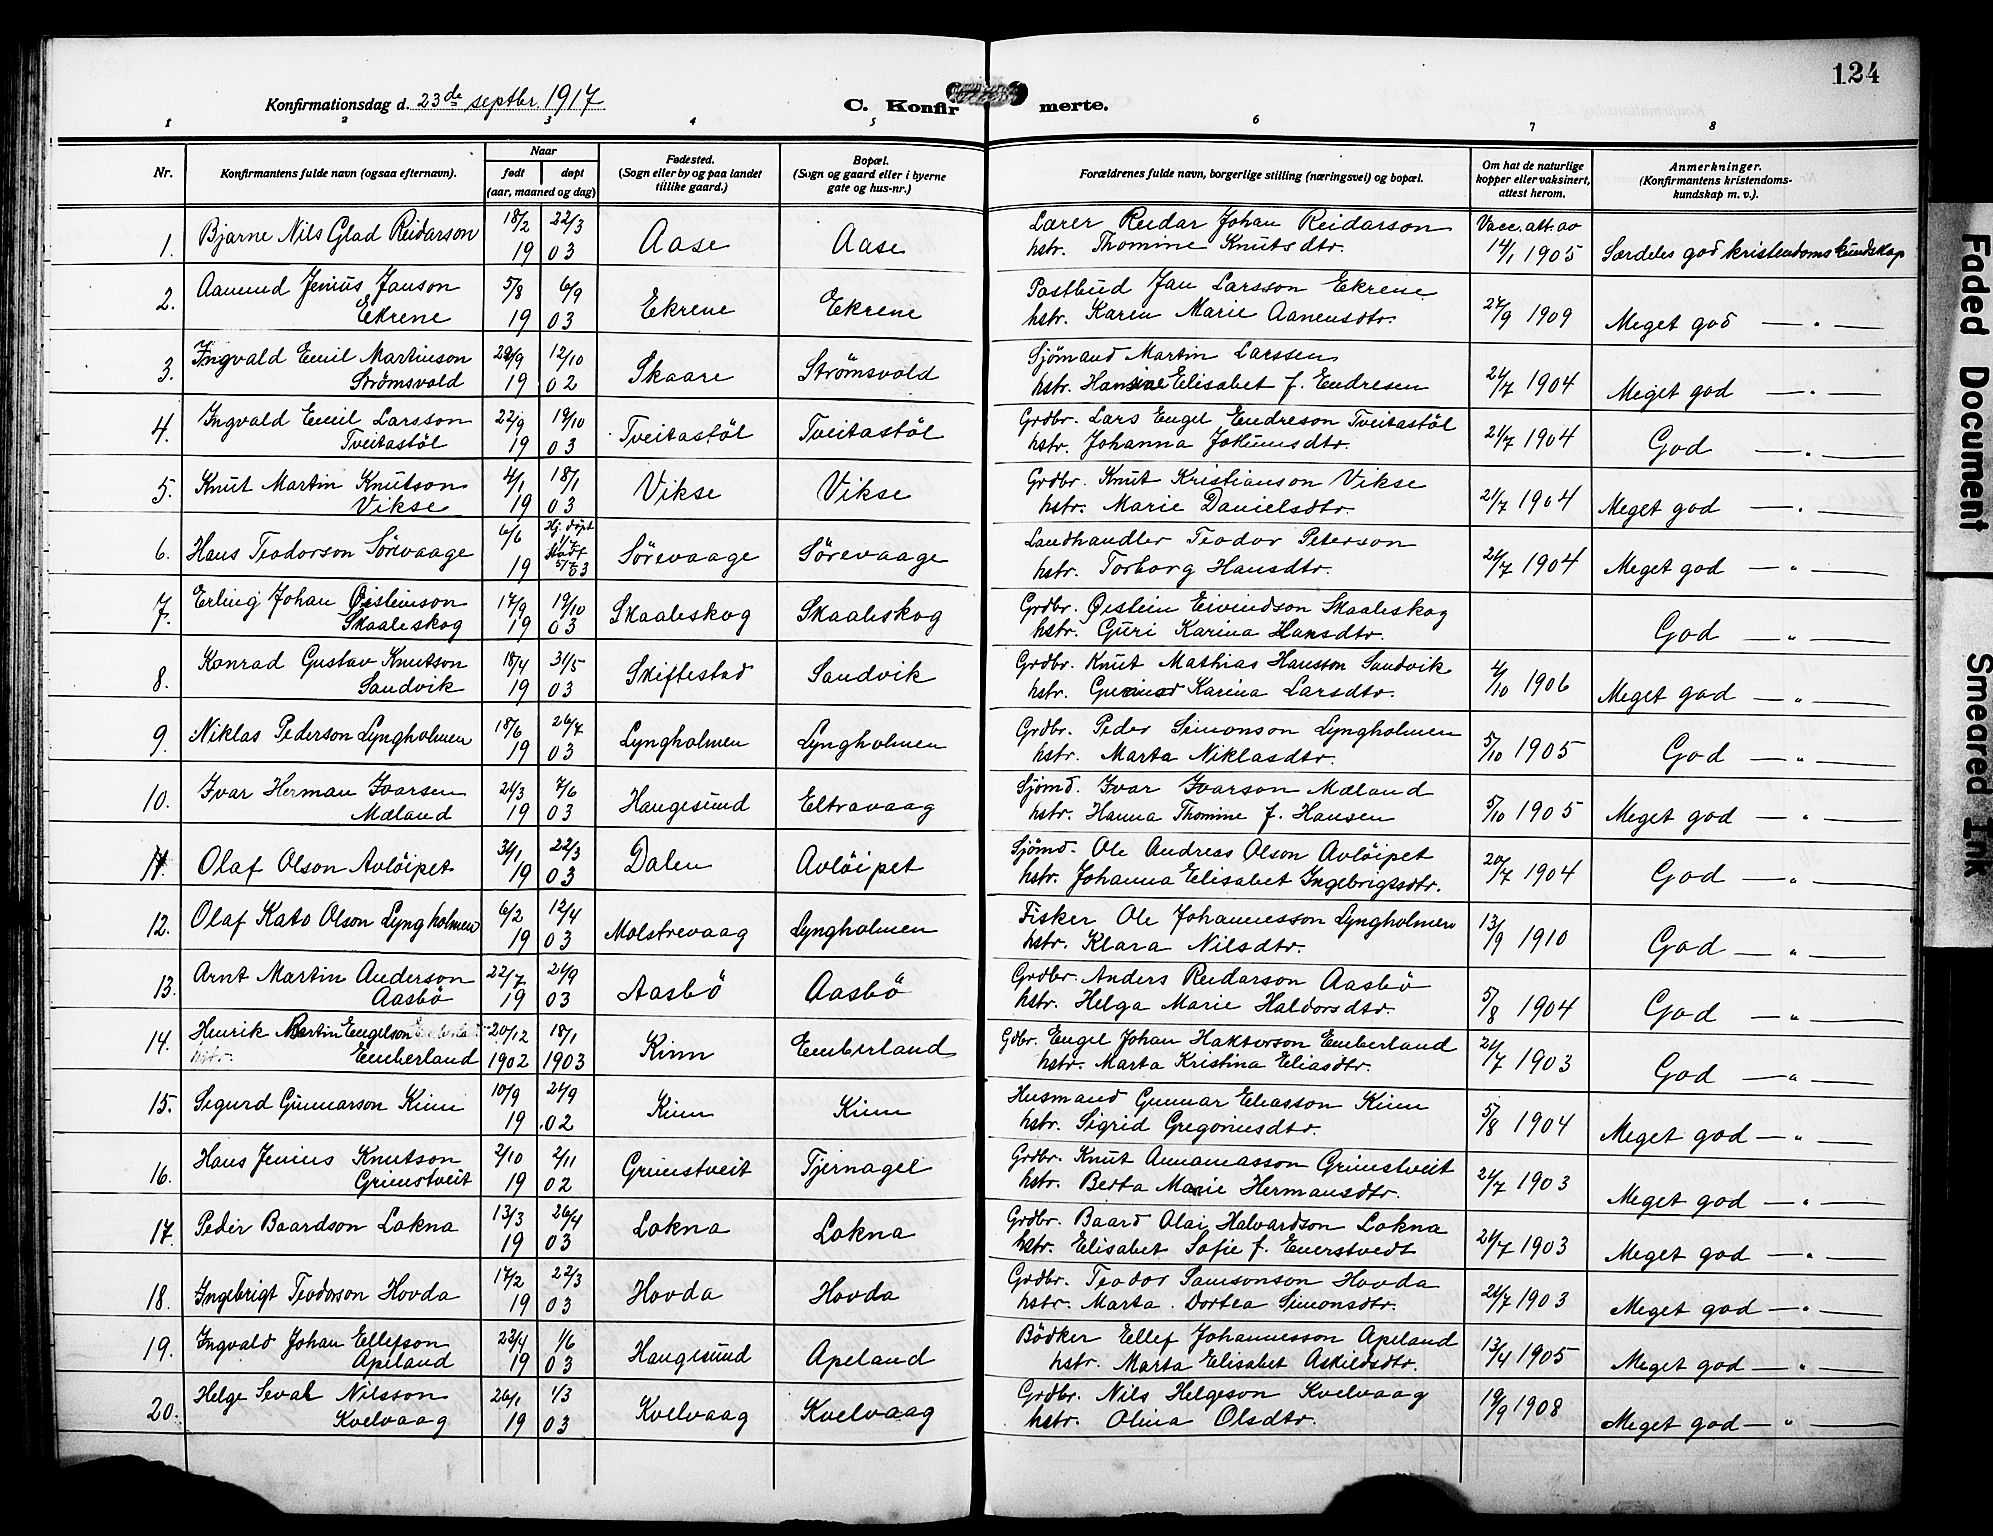 124
Konfirmationsdag d. 23de septbr. 1917
C. Konfirmerte.
1 2 3 4 5 6 7 8
Nr.
Konfirmantens fulde navn (ogsaa efternavn).
Naar
født døpt
(aar, maaned og dag)
Fødested.
(Sogn eller by og paa landet
tillike gaard.)
Bopæl.
(Sogn og gaard eller i byerne
gate og hus-nr.)
Forældrenes fulde navn, borgerlige stilling (næringsvei) og bopæl.
Om hat de naturlige
kopper eller vaksinert,
attest herom.
Anmerkninger.
(Konfirmantens kristendoms-
kundskap m. v.).
1. Bjarne Nils Glad Reidarson 18/2 22/3 19 03 Aase Aase Lærer Reidar Johan Reidarson
hstr. Thomine Knutsdtr. Vacc. att. av 14/1 1905 Særdeles god kristendomskundskap
2. Aamund Jenius Janson
Ekrene 5/8 6/9 19 03 Ekrene Ekrene Postbud Jan Larsson Ekrene
hstr. Karen Marie Aanensdtr. 27/9 1909 Meget god — " —
3. Ingvald Emil Martinson
Strømsvold 29/9 12/10 19 02 Skaare Strømsvold Sjømand Martin Larssen
hstr. Hansine Elisabet f. Endresen 21/7 1904 Meget god — " —
4. Ingvald Emil Larsson
Tveitastøl 22/9 19/10 19 03 Tveitastøl Tveitastøl Grdbr. Lars Engel Endreson Tveitastøl
hstr. Johanna Jokumsdtr. 21/7 1904 God — " —
5. Knut Martin Knutson
Vikse 4/1 18/1 19 03 Vikse Vikse Grdbr. Knut Kristianson Vikse
hstr. Marie Danielsdtr. 21/7 1904 Meget god — " —
6. Hans Teodorson Sørevaage 6/6 Hj. døpt
stadf. 5/7 03 19 Sørevaage Sørevaage Landhandler Teodor Peterson
hstr. Torborg Hansdtr. 21/7 1904 Meget god — " —
7. Erling Johan Øisteinson
Skaaleskog 17/9 19/10 19 03 Skaaleskog Skaaleskog Grdbr. Øistein Eivindson Skaaleskog
hstr. Guri Karina Hansdtr. God — " —
8. Konrad Gustav Knutson
Sandvik 18/4 31/5 19 03 Skiftestad Sandvik Grdbr. Knut Mathias Hansson Sandvik
hstr. Karina Larsdtr. 4/10 1906 Meget god — " —
9. Niklas Pederson Lyngholmen 18/6 26/7 19 03 Lyngholmen Lyngholmen Grdbr. Peder Simonson Lyngholmen
hstr. Marta Niklasdtr. 5/10 1905 God — " —
10. Ivar Herman Ivarsen
Mæland 21/3 7/6 19 03 Haugesund Eltravaag Sjømd. Ivar Ivarson Mæland
hstr. Hanna Thomine f. Hansen 5/10 1905 Meget god — " —
11. Olaf Olson Avløipet 31/1 22/3 19 03 Dalen Avløipet Sjømd. Ole Andreas Olson Avløipet
hstr. Johanna Elisabet Ingebrigtsdtr. 20/7 1904 God — " —
12. Olaf Kato Olson Lyngholmen 6/2 12/4 19 03 Molstrevaag Lyngholmen Fisker Ole Johannesson Lyngholmen
hstr. Klara Nilsdtr. 13/9 1910 God — " —
13. Arnt Martin Anderson
Aasbø 22/7 21/9 19 03 Aasbø Aasbø Grdbr. Anders Reidarson Aasbø
hstr. Helga Marie Haldorsdtr. 5/8 1904 God — " —
14. Henrik Martin Engelson
Emberland 20/12 1902 18/1 1903 Kinn Emberland Gdbr. Engel Johan Haktorson Emberland
hstr. Marta Kristina Eliasdtr. 21/7 1903 God — " —
15. Sigurd Gunnarson Kinn 10/9 21/9 19 02 Kinn Kinn Husmand Gunnar Eliasson Kinn
hstr. Sigrid Gregoriusdtr. 5/8 1904 Meget god — " —
16. Hans Jenius Knutson
Grimstveit 2/10 2/11 19 02 Grimstveit Tjernagel Grdbr. Knut Annamasson Grimstveit
hstr. Berta Marie Hermansdtr. 21/7 1903 Meget god — " —
17. Peder Baardson Lokna 13/3 26/4 19 03 Lokna Lokna Grdbr. Baard Olai Halvardson Lokna
hstr. Elisabet Sofie f. Enerstvedt 21/7 1903 Meget god — " —
18. Ingebrigt Teodorson Hovda 17/2 22/3 19 03 Hovda Hovda Grdbr. Teodor Samsonson Hovda
hstr. Marta Dortea Simonsdtr. 21/7 1903 Meget god — " —
19. Ingvald Johan Ellefson
Apeland 23/4 1/6 19 03 Haugesund Apeland Bødker Ellef Johannesson Apeland
hstr. Marta Elisabet Askildsdtr. 13/4 1905 Meget god — " —
20. Helge Seval Nilsson
Kvelvaag 26/1 1/3 19 03 Kvelvaag Kvelvaag Grdbr. Nils Helgeson Kvelvaag
hstr. Olina Olsdtr. 19/9 1908 Meget god — " —
Faded Document
Smeared Ink